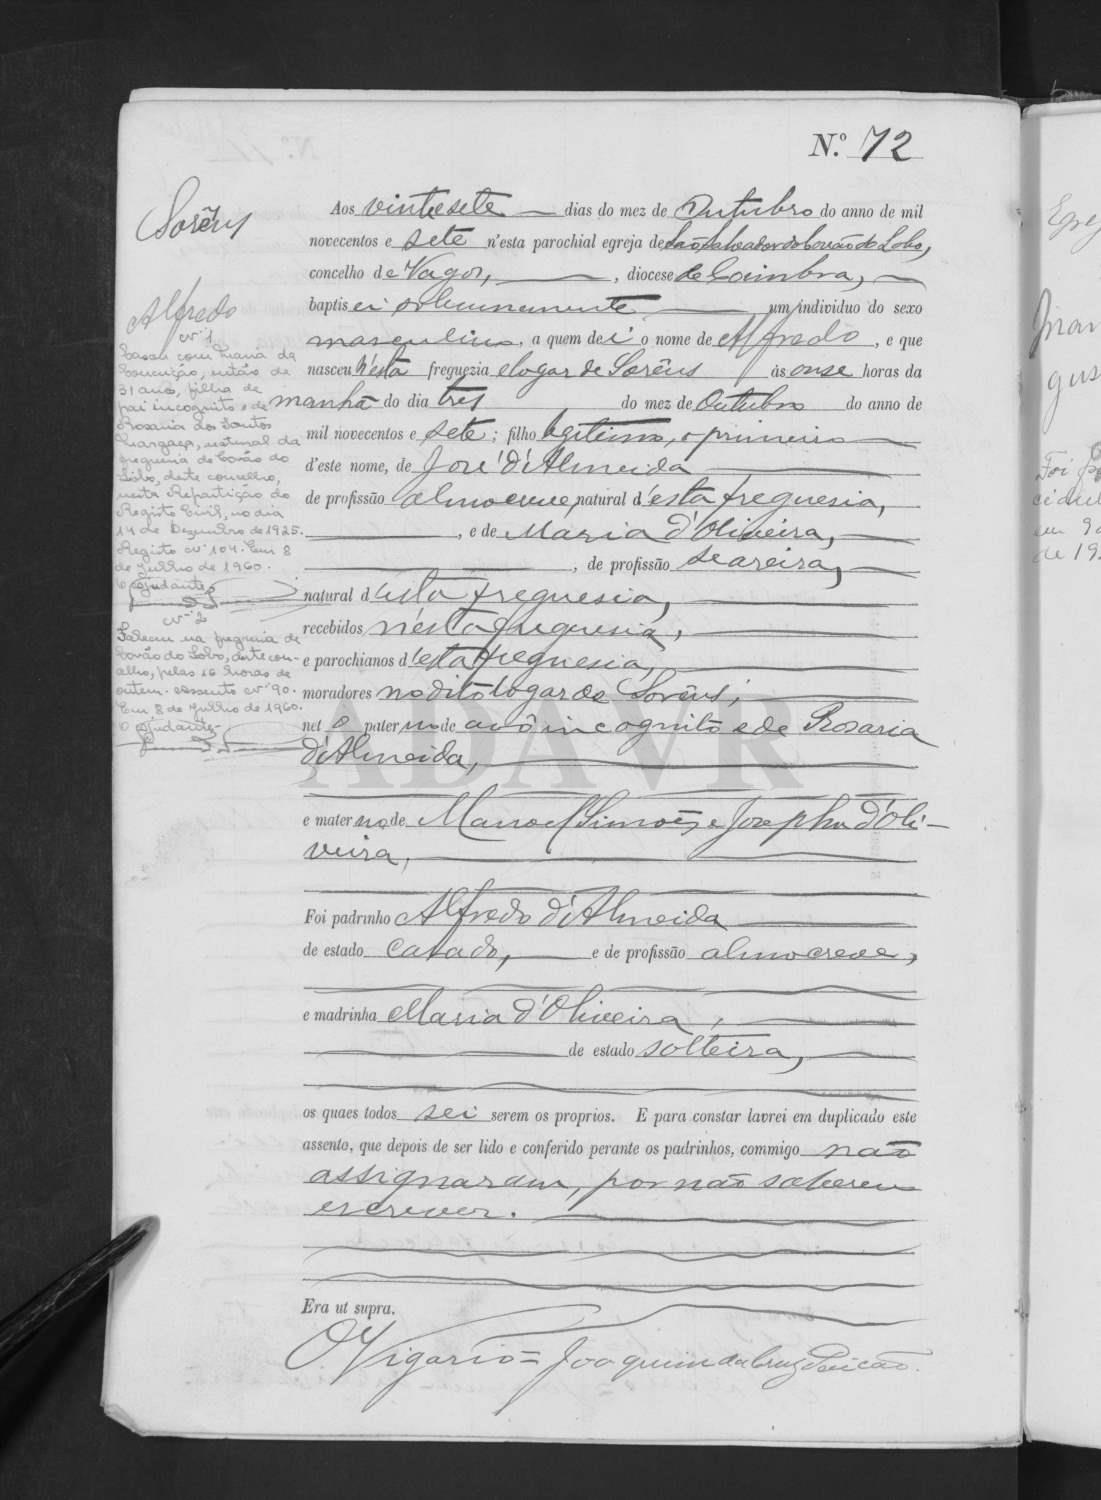 N.º 72
Sorêns
Alfredo
Aos vinte sete dias do mez de Outubro do anno de mil
novecentos e sete n'esta parochial egreja de São Salvador do Covão do Lobo,
concelho de Vagos, , diocese de Coimbra,
baptisei solemnemente um individuo do sexo
masculino, a quem dei o nome de Alfredo, e que
nasceu n'esta freguezia e logar de Sorêns ás onse horas da
manhã do dia tres do mez de Outubro do anno de
mil novecentos e sete; filho legitimo, o primeiro
d'este nome, de José d'Almeida
de profissão almocreve, natural d'esta freguesia,
, e de Maria d'Oliveira,
, de profissão seareira,
natural d'esta freguesia,
recebidos n'esta freguesia,
e parochianos d'esta freguesia,
moradores no dito logar de Sorêns;
neto paterno de avô incognito e de Rosaria
d'Almeida,
e materno de Manoel Simões e Josepha d'Oli-
veira,
Foi padrinho Alfredo d'Almeida
de estado casado, e de profissão almocreve,
e madrinha Maria d'Oliveira,
de estado solteira,
os quaes todos sei serem os proprios. E para constar lavrei em duplicado este
assento, que depois de ser lido e conferido perante os padrinhos, commigo não
assignaram, por não saberem
escrever.
Era ut supra.
O Vigario = Joaquim da Cruz
nº 1
Casou com Maria da
Conceição, então de
31 anos, filha de
pai incognito e de
Rosaria dos Santos
natural da
freguesia de Covão do
Lobo, deste concelho,
nesta Repartição do
Registo Civil, no dia
14 de Dezembro de 1925.
Registo nº 104. Em 8
de Julho de 1960.
O ajudante,
nº 2
Faleceu na freguesia de
Covão do Lobo, deste con-
celho, pelas 16 horas de
ontem. Assento nº 90.
Em 8 de Julho de 1960.
O ajudante,
ADAVR
Foi
de 19